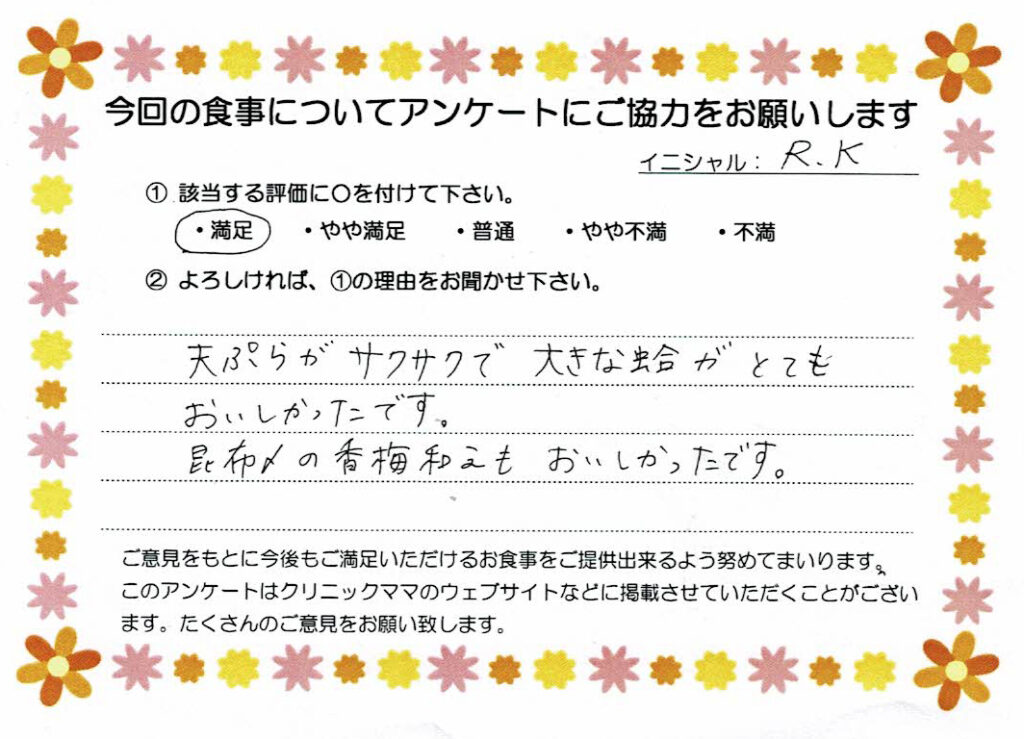 今回の食事についてアンケートにご協力をお願いします
イニシャル： R.K
① 該当する評価に〇を付けて下さい。
・満足 ・やや満足 ・普通 ・やや不満 ・不満
② よろしければ、①の理由をお聞かせ下さい。
天ぷらが サクサクで 大きな蛤が とても
おいしかったです。
昆布〆の香梅和えも おいしかったです。
ご意見をもとに今後もご満足いただけるお食事をご提供出来るよう努めてまいります。
このアンケートはクリニックママのウェブサイトなどに掲載させていただくことがござい
ます。たくさんのご意見をお願い致します。